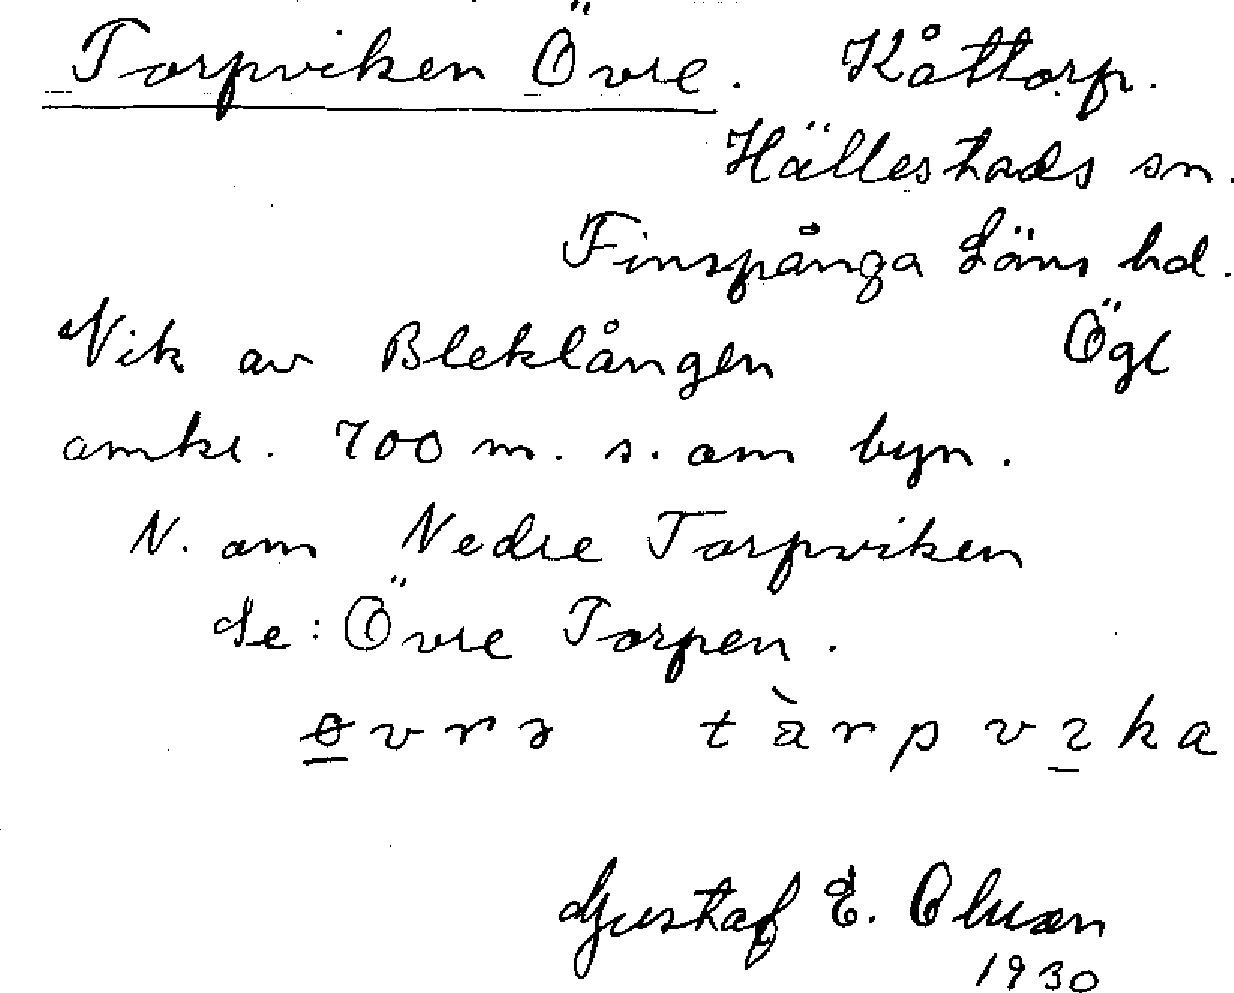 Torpviken Övre. Kåttorp.
Hällestads sn.
Finspånga Läns hd.
Vik av Bleklången Ögl
omkr. 700 m. s. om byn.
N. om Nedre Torpviken
Se: Övre Torpen.
Gustaf E. Olsson
1930